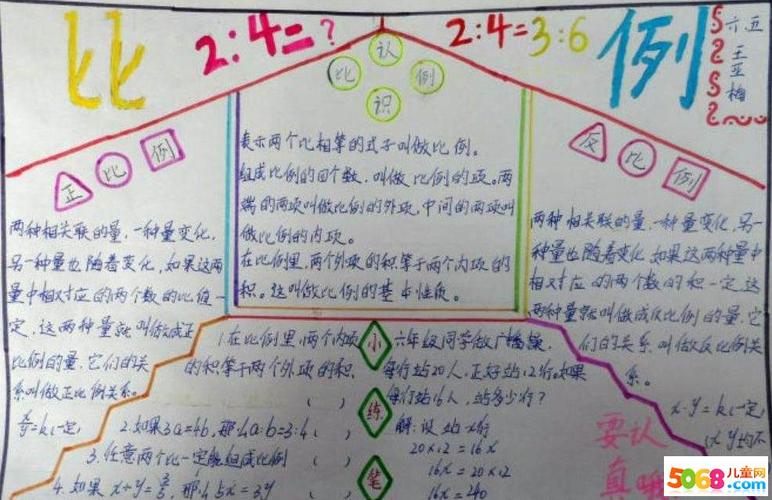 比
2:4=?
2:4=3:6
例
六五
王
亚
梅
认
比 例
识
正 比 例
两种相关联的量,一种量变化,
另一种量也随着变化,如果这两
量中相对应的两个数的比值一
定,这两种量就叫做成正
比例的量,它们的关
系叫做正比例关系。
=k(一定)
表示两个比相等的式子叫做比例。
组成比例的四个数,叫做比例的项。两
端的两项叫做比例的外项,中间的两项叫
做比例的内项。
在比例里,两个外项的积等于两个内项的
积。这叫做比例的基本性质。
反 比 例
两种相关联的量,一种量变化,另一
种量也随着变化,如果这两种量中
相对应的两个数的积一定,这
两种量就叫做成反比例的量,它
们的关系,叫做反比例关
系。
x·y=k(一定)
(x y均不
小
练
笔
1.在比例里,两个内项
的积等于两个外项的积. ( )
2.如果3a=4b,那么a:b=3:4 ( )
3.任意两个比一定能组成比例 ( )
4.如果x÷y= ,那么5x=3y
六年级同学做广播操,
每行站20人,正好站12行,如果
每行站16人,站多少行?
解:设站x行
20×12=16x
16x=20×12
16x=240
要认
真哦
5068儿童网